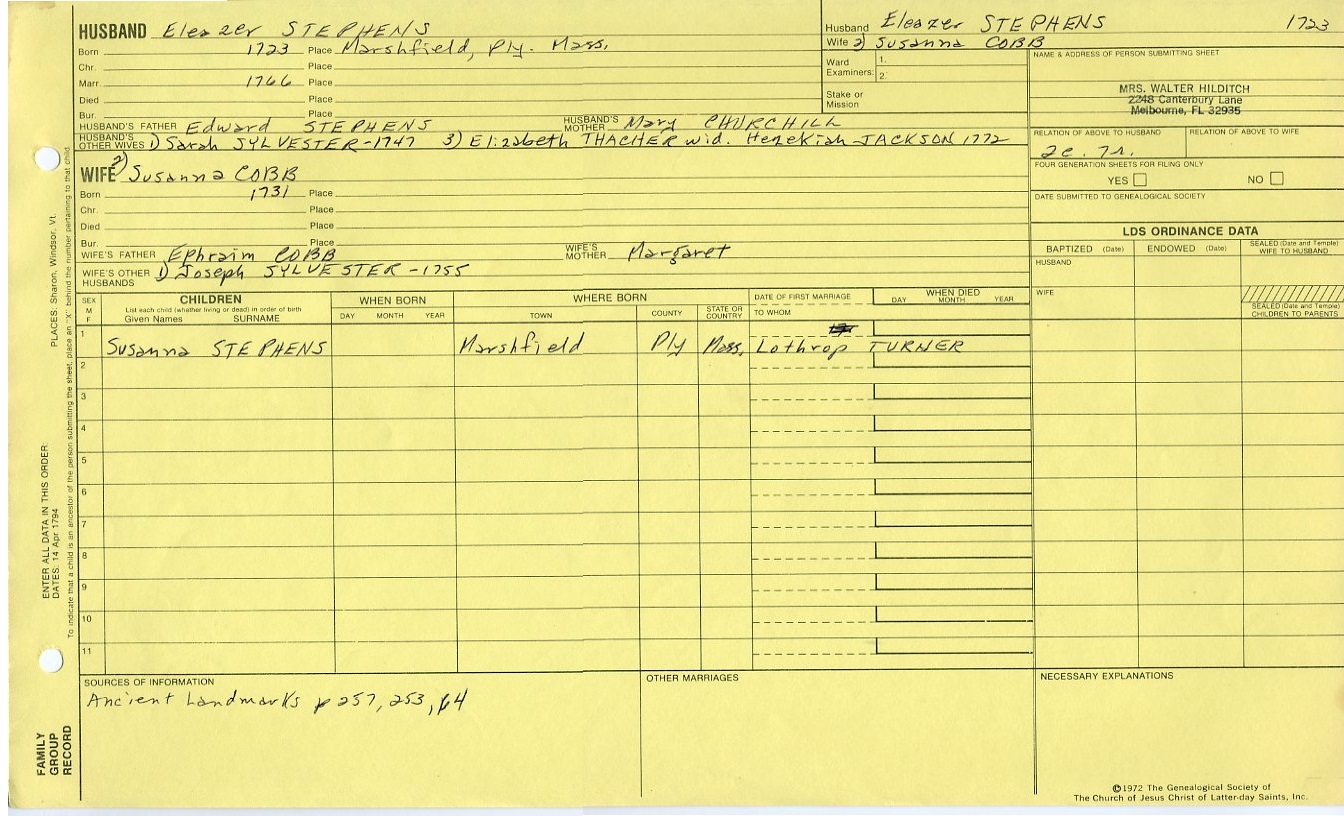 HUSBAND Eleazer STEPHENS
Born 1723 Place Marshfield, Ply. Mass.
Chr. Place
Marr. 1766 Place
Died Place
Bur. Place
HUSBAND'S FATHER Edward STEPHENS HUSBAND'S MOTHER Mary CHURCHILL
HUSBAND'S OTHER WIVES 1) Sarah SYLVESTER-1747 3) Elizabeth THACHER wid. Hezekiah JACKSON 1772
WIFE 2) Susanna COBB
Born 1731 Place
Chr. Place
Died Place
Bur. Place
WIFE'S FATHER Ephraim COBB WIFE'S MOTHER Margaret
WIFE'S OTHER HUSBANDS 1) Joseph SYLVESTER -1755
Husband Eleazer STEPHENS 1723
Wife 2) Susanna COBB
Ward Examiners: 1.
2.
Stake or Mission
NAME & ADDRESS OF PERSON SUBMITTING SHEET
MRS. WALTER HILDITCH
2248 Canterbury Lane
Melbourne, FL 32935
RELATION OF ABOVE TO HUSBAND RELATION OF ABOVE TO WIFE
FOUR GENERATION SHEETS FOR FILING ONLY
YES NO
DATE SUBMITTED TO GENEALOGICAL SOCIETY
LDS ORDINANCE DATA
BAPTIZED (Date) ENDOWED (Date) SEALED (Date and Temple) WIFE TO HUSBAND
HUSBAND
WIFE
SEALED (Date and Temple) CHILDREN TO PARENTS
SEX M F
CHILDREN
List each child (whether living or dead) in order of birth
Given Names SURNAME
WHEN BORN
DAY MONTH YEAR
WHERE BORN
TOWN COUNTY STATE OR COUNTRY
DATE OF FIRST MARRIAGE
TO WHOM
WHEN DIED
DAY MONTH YEAR
1 Susanna STEPHENS Marshfield Ply Mass. Lothrop TURNER
2
3
4
5
6
7
8
9
10
11
SOURCES OF INFORMATION
Ancient Landmarks p 257, 253, 64
OTHER MARRIAGES
NECESSARY EXPLANATIONS
©1972 The Genealogical Society of
The Church of Jesus Christ of Latter-day Saints, Inc.
PLACES: Sharon, Windsor, Vt.
ENTER ALL DATA IN THIS ORDER:
DATES: 14 Apr 1794
To indicate that a child is an ancestor of the person submitting the sheet, place an "X" behind the number pertaining to that child.
FAMILY
GROUP
RECORD